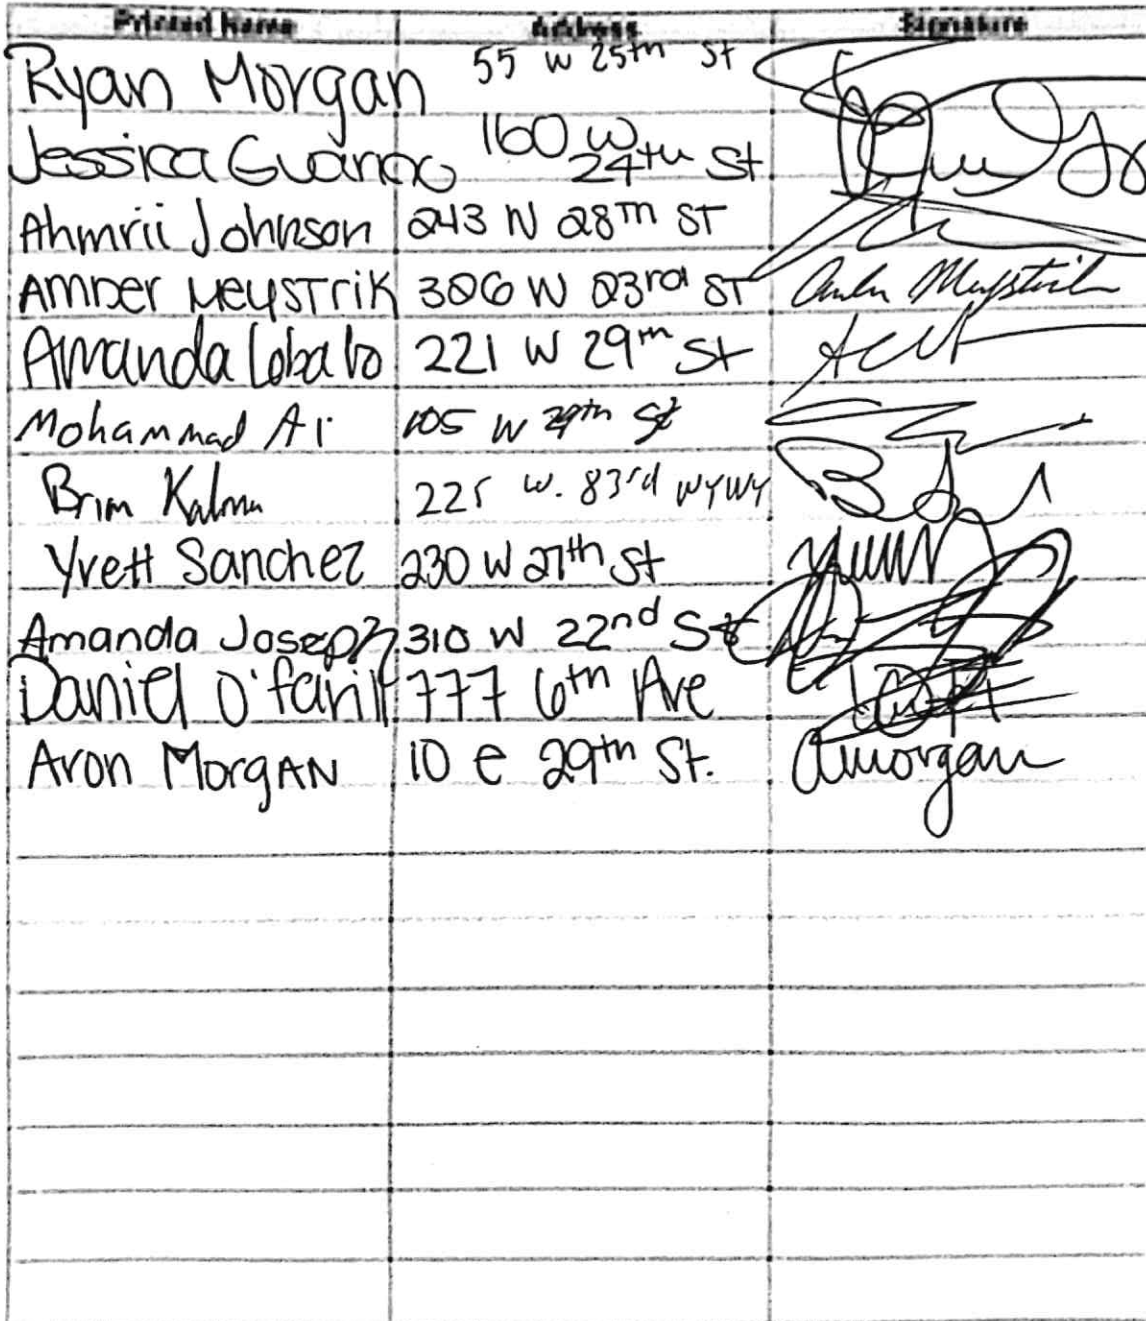 Printed Name Address Signature
Ryan Morgan 55 W 25th St
Jessica 160 W 24th St
Ahmrii Johnson 243 N 28TH ST
Amber Meystrik 306 W 23rd ST Amber Meystrik
Amanda Lobato 221 W 29th St
Mohammad Ali 105 W 29th St
Kalma 225 W. 83rd NYNY
Yvett Sanchez 230 W 27th St
Amanda Joseph 310 W 22nd St
Daniel O'farill 777 6th Ave
Aron Morgan 10 e 29th St. amorgan